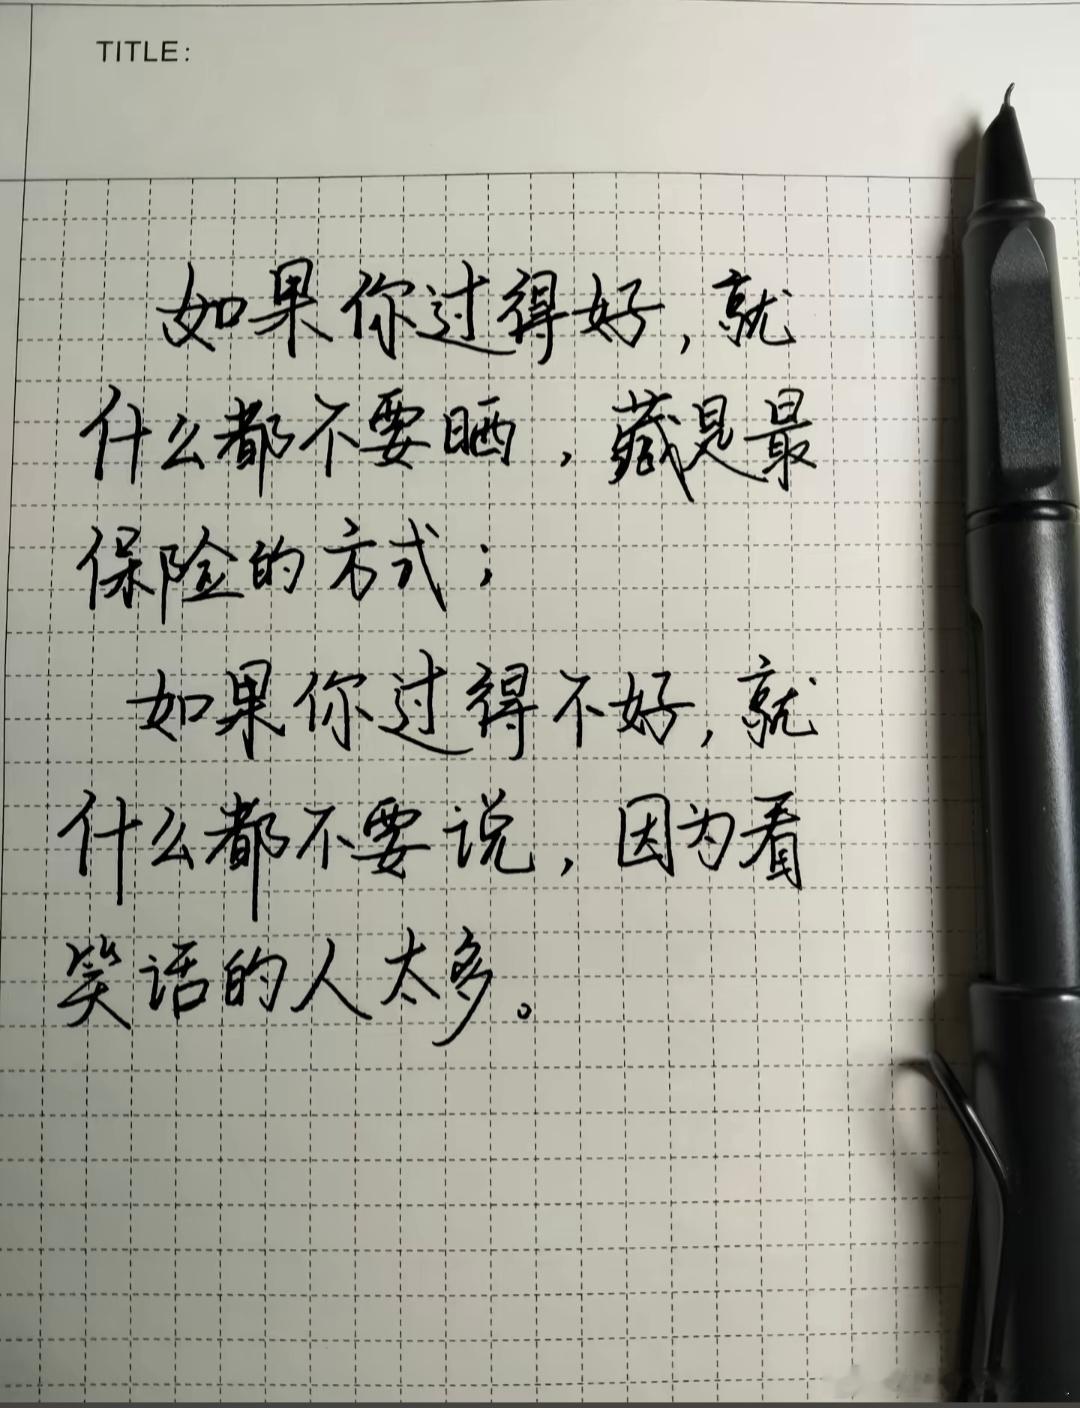 TITLE:
如果你过得好,就
什么都不要晒,藏是最
保险的方式;
如果你过得不好,就
什么都不要说,因为看
笑话的人太多。